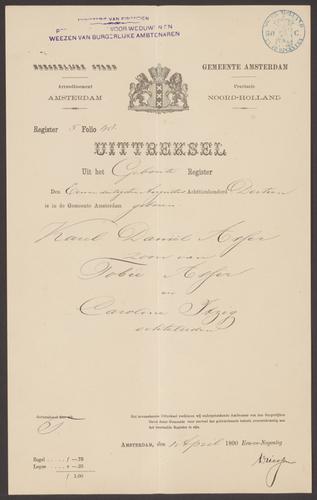 MINISTERIE VAN FINANCIEN
VOOR WEDUWEN EN
WEEZEN VAN BURGERLIJKE AMBTENAREN
BURGERLIJKE STAND
Arrondissement
AMSTERDAM
GEMEENTE AMSTERDAM
Provincie
NOORD-HOLLAND
Register 5 Folio
UITTREKSEL
Uit het Geboorte Register
Den Een en dertigsten Augustus Achttienhonderd Dertien
is in de Gemeente Amsterdam geboren
Karel Daniël Asser
zoon van
Tobie Asser
en
Caroline Itzig
echtelieden
Het bovenstaande Uittreksel verklaren wij ondergeteekende Ambtenaar van den Burgerlijken
Stand dezer Gemeente voor zooveel het geboekstaafde betreft, overeenkomstig aan
het voormelde Register te zijn.
AMSTERDAM, den 1 April 1890 Een-en-Negentig
Zegel f —.75
Leges » —.25
f 1.00